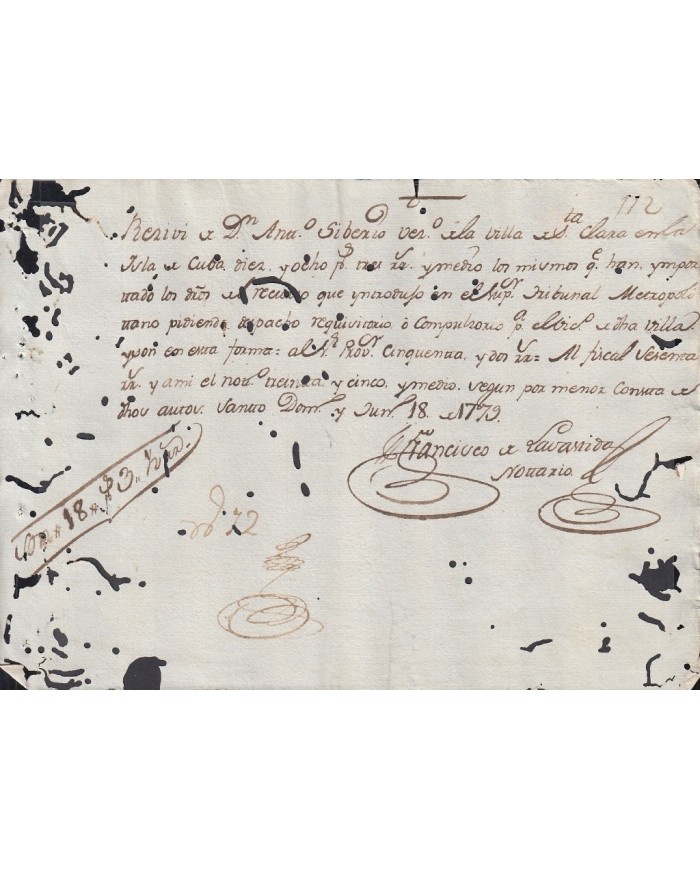 112
Rezivi de Dn Anto. Siberio vezo. de la villa de Sta Clara en la
Ysla de Cuba diez, y ocho ps. tres rr. y medio los mismos q. han ympor
tado los dros del recurso que yntroduso en el Supr. Tribunal Metropoli
tano pidiendo despacho requisitorio ô Compulsorio pa. el Vico. de dha villa
y son en esta forma: al Sr. Provr. cinquenta, y dos rr = Al fiscal sesenta
rr. y a mi el noto. treinta y cinco, y medio. segun por menor Consta de
dhos autos. Santo Domo. y Jun. 18 de 1779.
Francisco de Lavastida
Nottario
Son " 18 " ps 3 "
72